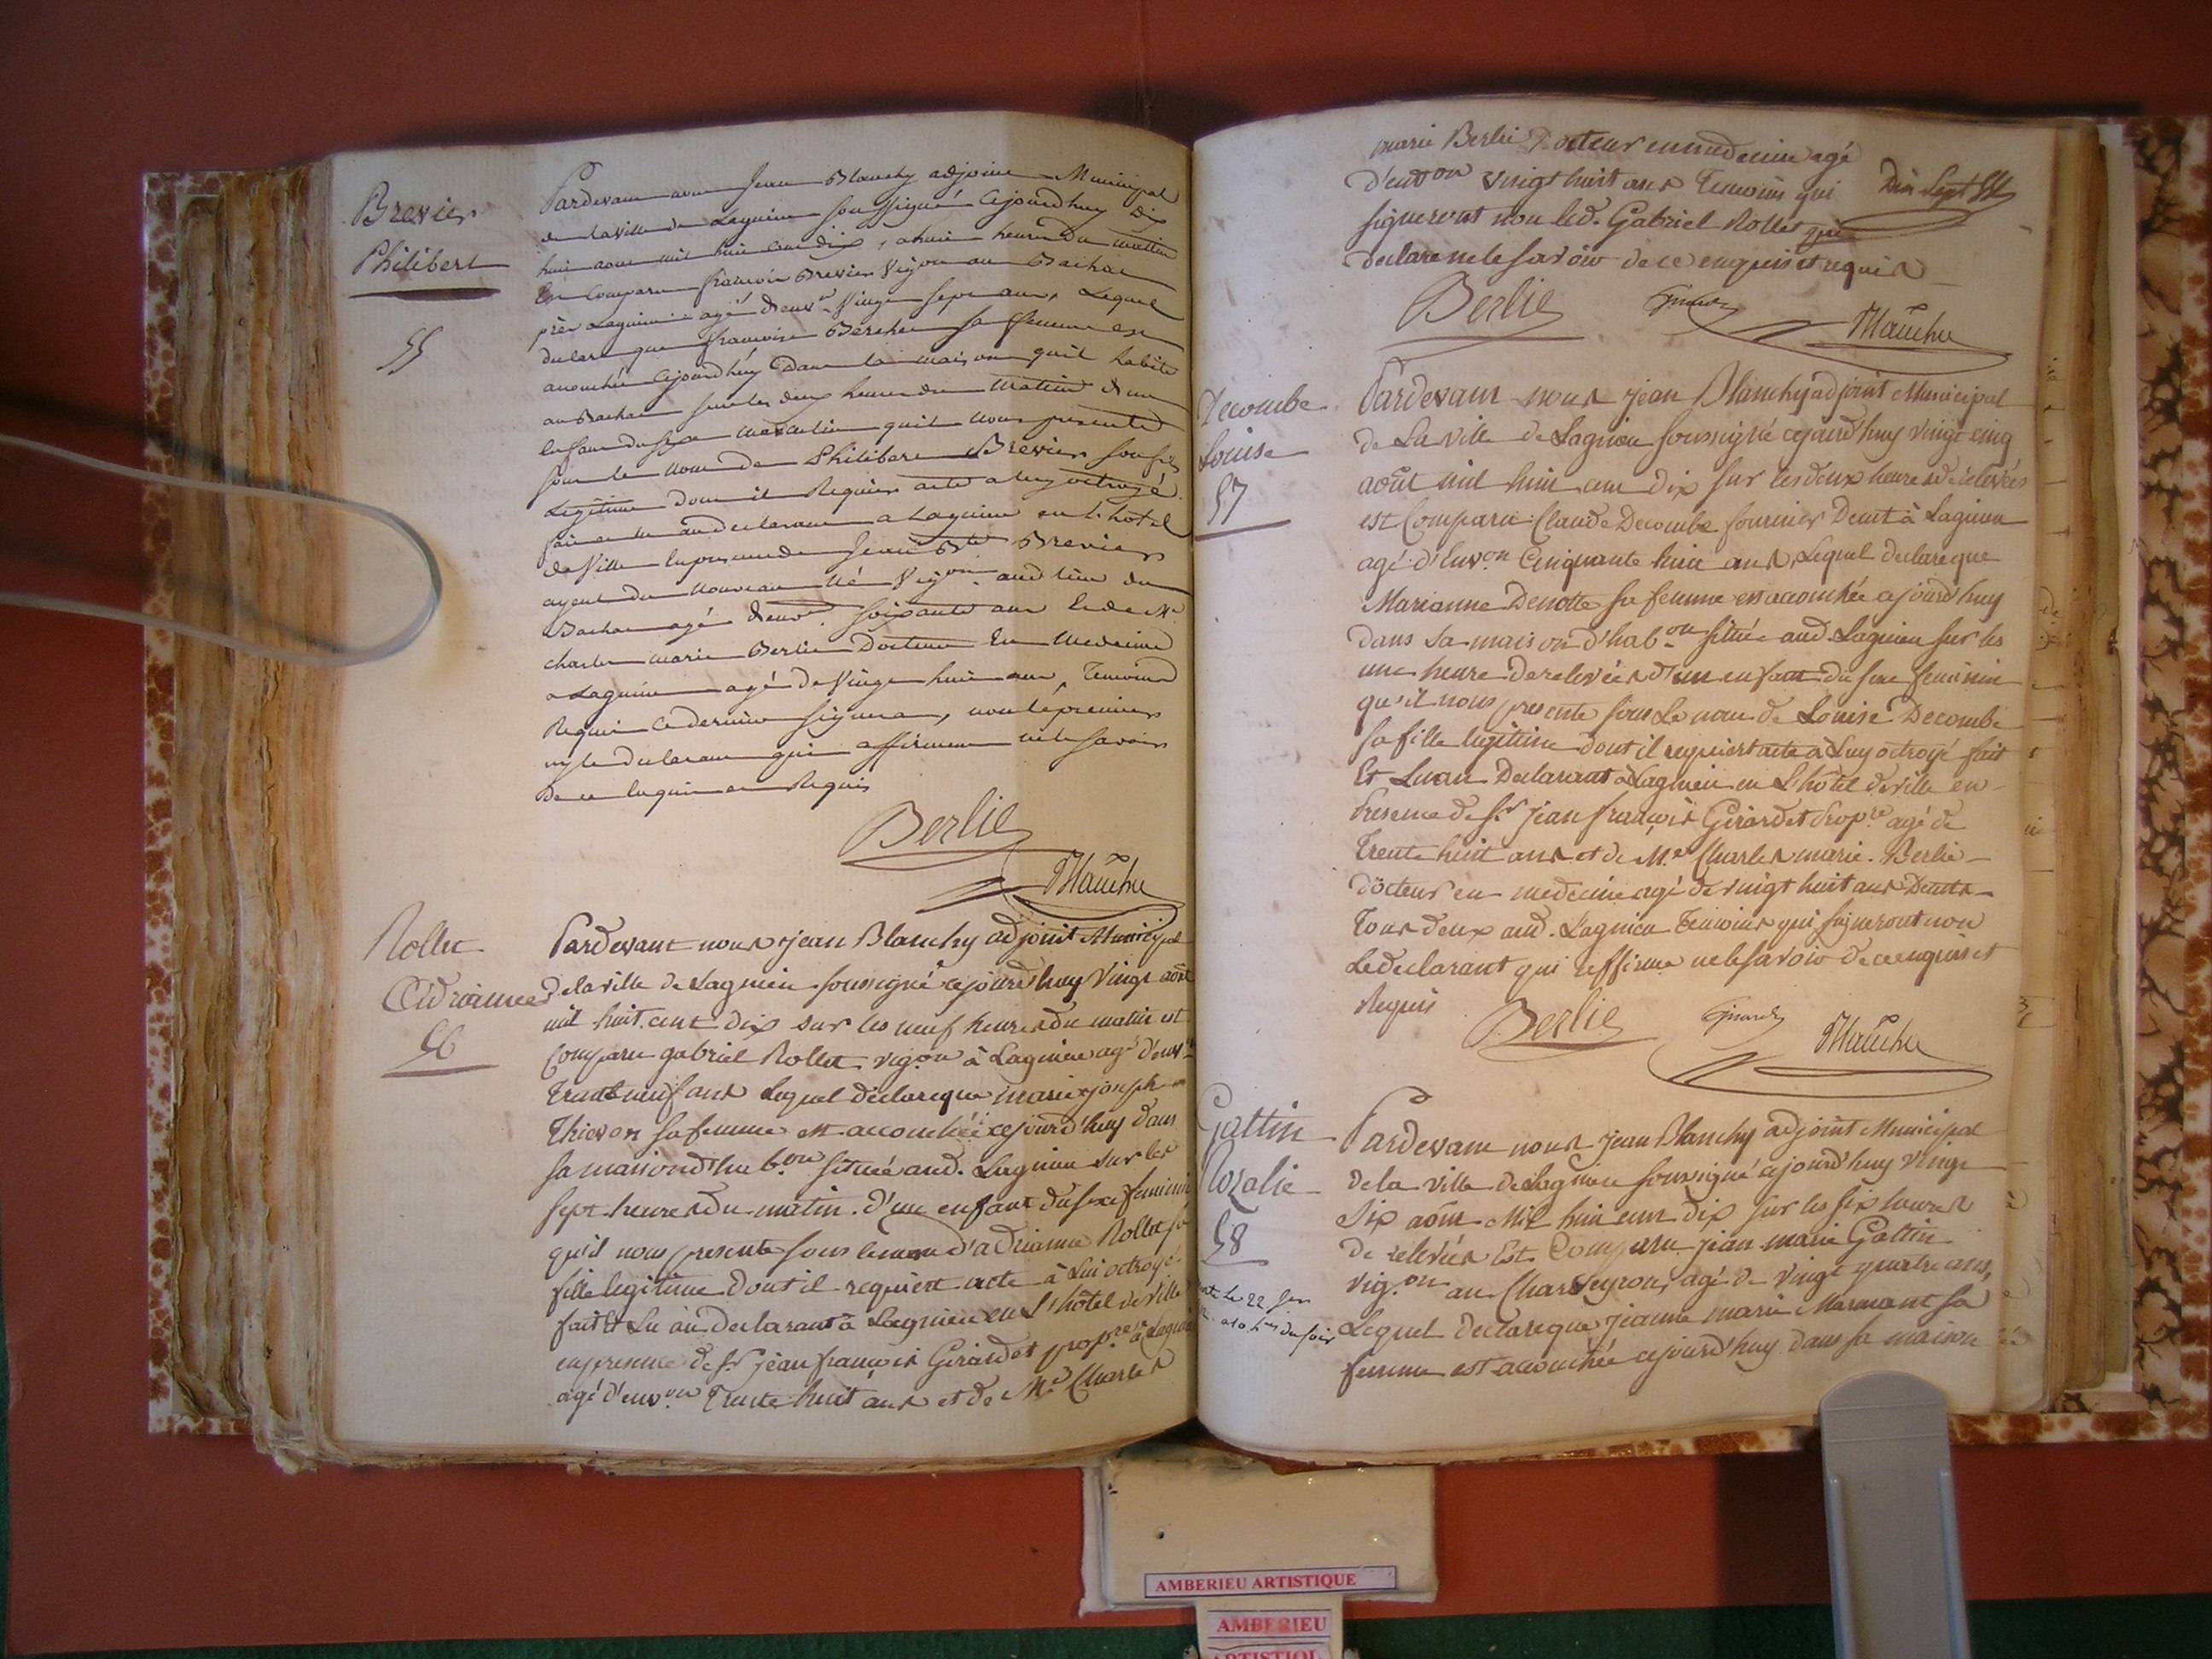 Brevier
Philibert
55
Pardevant nous Jean Blanchy adjoint Municipal
de la Ville de Lagnieu soussigné Cejourdhuy Dix
huit aout mil huit cent dix, a huit heures Du mattin
Est Comparu françois Brevier Vig̃on au Bachas
près Lagnieu agé d'env.on Vingt sept ans, Lequel
declare que françoise sa femme est
accouchée Cejourdhuy Dans la maison qu'il habite
au Bachas sur les deux heures du Matin d'un
enfant du sexe masculin quil nous presente
sous le nom de Philibert Brevier son fils
Legitime dont il Requier acte a luy octroyé
fait et lu au declarant a Lagnieu en l'hotel
de Ville en presence de Jean Bte Brevier
ayeul du nouveau né Vig̃on aud lieu du
Bachas agé d'env.on soixante ans et de Me
charles marie Berlie Docteur En Medecine
a Lagnieu agé de Vingt huit ans, Temoins
Requis Ce dernier signera, non le premier
ny le declarant qui affirment ne le savoir
de ce Enquis et Requis
Berlie
Blanchy
Rollet
Adrianne
56
Pardevant nous jean Blanchy adjoint Municipal
de la ville de Lagnieu soussigné cejourd'huy Vingt août
mil huit cent dix sur les neuf heures du matin est
Comparu gabriel Rollet vig.on à Lagnieu agé d'env.on
Trente neuf ans Lequel déclare que marie joseph
Thievon sa femme est accouchée cejourd'huy dans
sa maison d'hab.on située aud. Lagnieu sur les
sept heures du matin d'un enfant du sexe feminin
qu'il nous presente sous le nom d'adrianne Rollet sa
fille legitime dont il requiert acte à Lui octroyé
fait & Lu au declarant à Lagnieu en L'hôtel de Ville
en presence de Sr jean françois Girardet prop.re à Lagnieu
agé d'env.on Trente huit ans et de Me Charles
marie Berlie Docteur en medecine agé
d'env.on vingt huit ans Temoins qui
signeront non led. Gabriel Rollet qui
declare ne le savoir de ce enquis et requis
Dix Sept
Berlie
Girardet
Blanchy
Decombe
Louise
57
Pardevant nous jean Blanchy adjoint Municipal
de La ville de Lagnieu soussigné cejourd'huy vingt cinq
août mil huit cent dix sur les deux heures de relevées
est Comparu Claude Decombe fournier Demt à Lagnieu
agé d'Env.on Cinquante huit ans, Lequel declare que
Marianne Denotte sa femme est accouchée cejourd'huy
dans sa maison d'hab.on sittuée aud. Lagnieu sur les
une heure de relevées d'un enfant du sexe feminin
qu'il nous presente sous Le nom de Louise Decombe
sa fille legitime dont il requiert acte à Luy octroyé fait
Et Lu au Declarant à Lagnieu en L'hôtel de ville en
Presence de Sr jean françois Girardet Prop.re agé de
Trente huit ans et de Me Charles marie Berlie
docteur en medecine agé de vingt huit ans Demts
Tous deux aud. Lagnieu Temoins qui signeront non
Le declarant qui affirme ne le savoir de ce enquis et
Requis
Berlie
Girardet
Blanchy
Gattin
Rozalie
58
Pardevant nous jean Blanchy adjoint Municipal
de la ville de Lagnieu soussigné cejourd'huy vingt
Six août Mil huit cent dix sur les six heures
de relevées Est Comparu jean marie Gattin
vig.on au Charveyron, agé de vingt quatre ans,
Lequel declare que jeanne marie Marmant sa
femme est accouchée cejourd'huy dans sa maison
le 22
a 10 hres du soir
AMBERIEU ARTISTIQUE
AMBERIEU